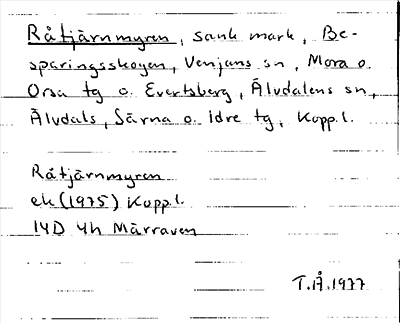 Råtjärnmyren, sank mark, Be-
sparingsskogen, Venjans sn, Mora o.
Orsa tg o. Evertsberg, Älvdalens sn,
Älvdals, Särna o. Idre tg, Kopp. l.
Råtjärnmyren
ek (1975) Kopp. l.
14D 4h Märraven
T.Å. 1977